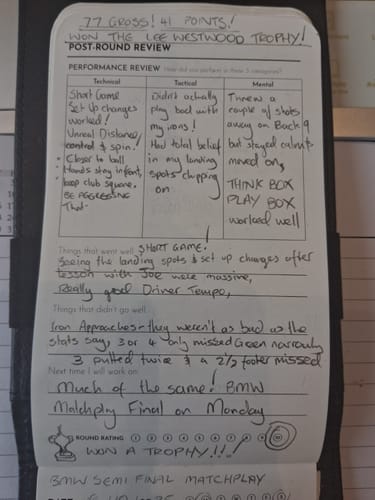 77 GROSS! 41 POINTS!
WON THE LEE WESTWOOD TROPHY!
POST-ROUND REVIEW
PERFORMANCE REVIEW How did you perform in these 3 categories?
Technical
Short Game
Set Up changes
worked!
Unreal Distance,
control & spin!
• Closer to ball
• Hands stay infront,
keep club square.
BE AGGRESSIVE
That
Tactical
Didn't actually
play bad with
my irons!
Had total belief
in my landing
spots chipping
on
Mental
Threw a
couple of shots
away on Back 9
but stayed calm &
moved on,
THINK BOX
PLAY BOX
worked well
Things that went well SHORT GAME!
Seeing the landing spots & set up changes after
lesson with Joe were massive,
Really good Driver Tempo,
Things that didn't go well
Iron Approaches - they weren't as bad as the
stats say, 3 or 4 only missed Green narrowly
3 putted twice & a 2 1/2 footer missed
Next time I will work on
Much of the same! BMW
Matchplay Final on Monday
ROUND RATING 1 2 3 4 5 6 7 8 9 10
WON A TROPHY!!!
BMW SEMI FINAL MATCHPLAY